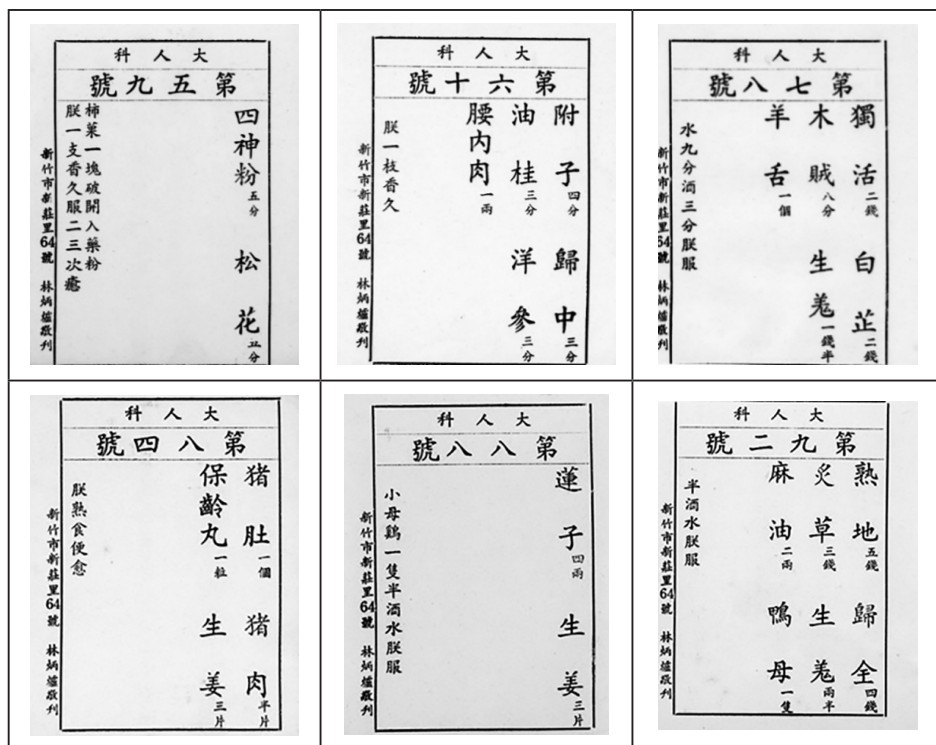 大人科
第五九號
四神粉五分 松花五分
柿菓一塊破開入藥粉
朕一支香久服二三次癒
新竹市新莊里64號 林炳爐敬刊
大人科
第六十號
附子四分 歸中三分
油桂三分 洋參三分
腰内肉一兩
朕一枝香久
新竹市新莊里64號 林炳爐敬刊
大人科
第七八號
獨活二錢 白芷二錢
木賊八分 生羗一錢半
羊舌一個
水九分酒三分朕服
新竹市新莊里64號 林炳爐敬刊
大人科
第八四號
猪肚一個 猪肉半片
保齡丸一粒 生姜三片
朕熟食便愈
新竹市新莊里64號 林炳爐敬刊
大人科
第八八號
蓮子四兩 生姜三片
小母鷄一隻半酒水朕服
新竹市新莊里64號 林炳爐敬刊
大人科
第九二號
熟地五錢 歸全四錢
炙草三錢 生羗兩半
麻油二兩 鴨母一隻
半酒水朕服
新竹市新莊里64號 林炳爐敬刊